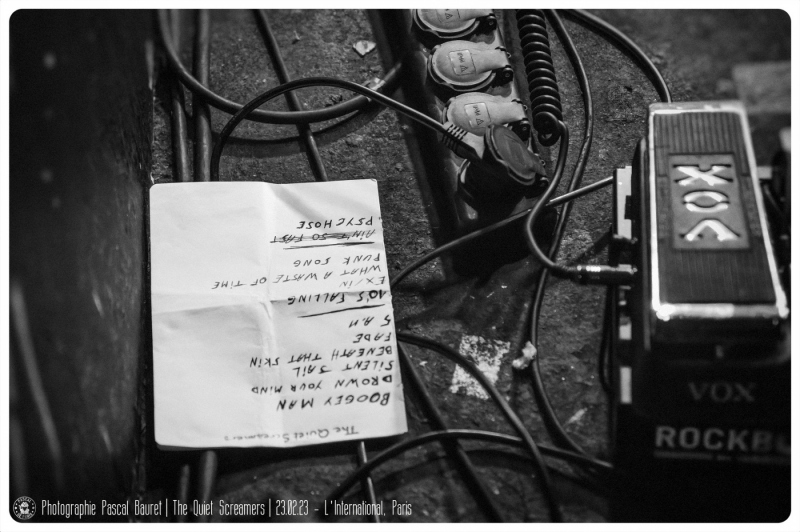 The Quiet Screamers
BOOGEY MAN
DROWN YOUR MIND
SILENT JAIL
BENEATH THAT SKIN
FADE
5 A.M
10'S FALLING
EX/IN
WHAT A WASTE OF TIME
PUNK SONG
AIN'T SO FAST
PSYCHOSE
VOX
VOX
ROCKB
Photographie Pascal Bauret | The Quiet Screamers | 23.02.23 - L'International, Paris